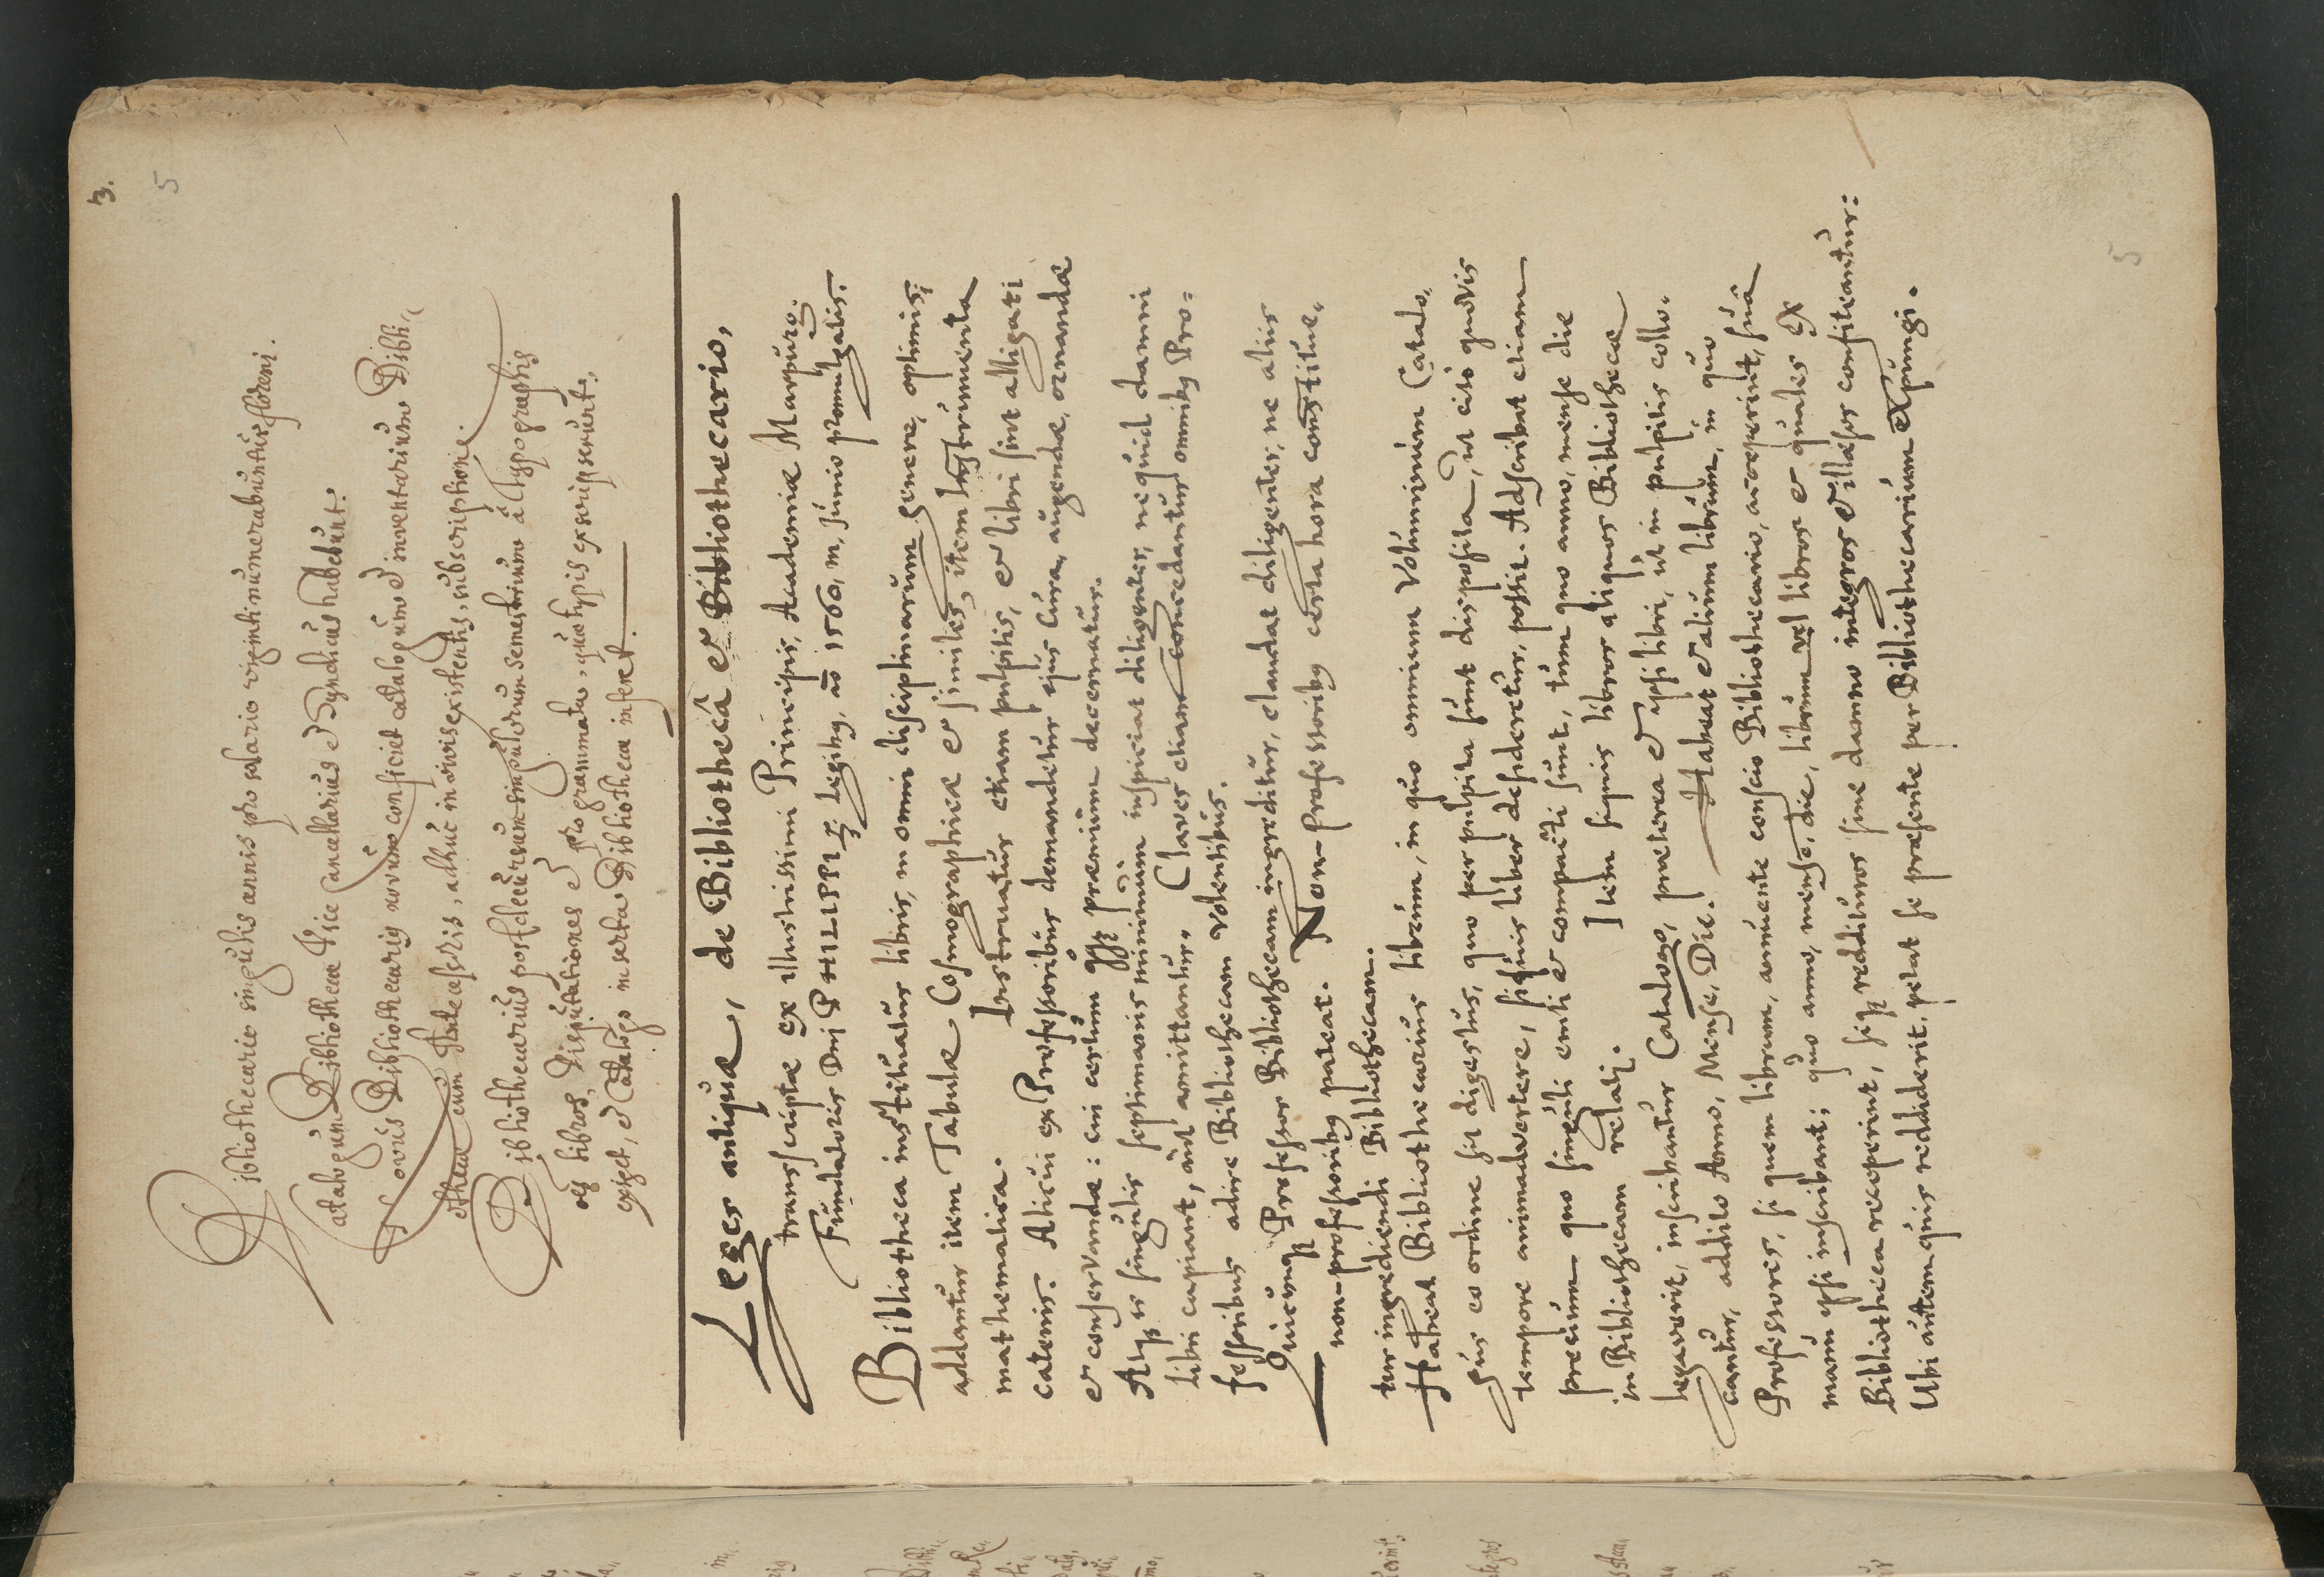 3.
5
Bibliothecario singulis annis pro salario viginti numerabuntur floreni.
Catalogum Bibliothecæ Vice Cancellarius et Syndicus habebunt.
Novus Bibliothecarig novum conficiet catalogum et inventarium Bibli„
othecæ cum Antecessoris, adhuc in vivis existentis, subscriptione.
Bibliothecarius post decursum singulorum semestrium â Typographis
libros, Disputationes et programmata, quæ typis exscripserunt,
exiget, et Catalogo inserta Bibliothecæ inferet.
Leges antiquæ, de Bibliothecâ & Bibliothecario,
transscriptæ ex illustrissimi Principis, Academiæ Marpurg.
Fundatoris Dni PHILIPPI legibg, aō 1560, m, Junio promulgatis.
Bibliotheca instituatur libris, in omni disciplinarum genere, optimis;
addantur item Tabulæ Cosmographicæ & similes, item Instrumenta
mathematica. Instruatur etiam pulpitis, & libri sint alligati
catenis. Alicui ex Professoribus demandetur ejus cura, augendæ, ornandæ
& conservandæ: cui certum præmium decernatur.
Atqz is singulis septimanis minimùm inspiciat diligenter, ne quid damni
libri capiant, aut amittantur. Claves etiam concedantur omnibg Pro=
fessoribus adire Bibliothecam volentibus.
Quicunqz Professor Bibliothecam ingreditur, claudat diligenter, ne aliis
non-professoribg pateat. Non-professoribg certa hora constitue„
tur ingrediendi Bibliothecam.
Habeat Bibliothecarius librum, in quo omnium voluminum Catalo„
gus eo ordine sit digestus, quo per pulpita sunt disposita, ut eo quovis
tempore animadvertere, siquis liber desideretur, possit. Adscribat etiam
precium quo singuli emti & compacti sunt, tum quo anno, mense die
in Bibliothecam relati. Item siquis libros aliquos Bibliothecæ
legaverit, inscribantur Catalogo, præterea & ipsi libri, ut in pulpitis collo„
cantur, addito Anno, Mense, Die. Habeat & alium librum, in quo
Professores, si quem librum, annuente conscio Bibliothecario, acceperint, suâ
manu ipsi inscribant; quo anno, mense, die, librum vel libros & quales ex
Bibliotheca receperint, seqz reddituros sine damno integros & illæsos confiteantur:
Ubi autem quis reddiderit, petat se præsente per Bibliothecarium expungi.
5